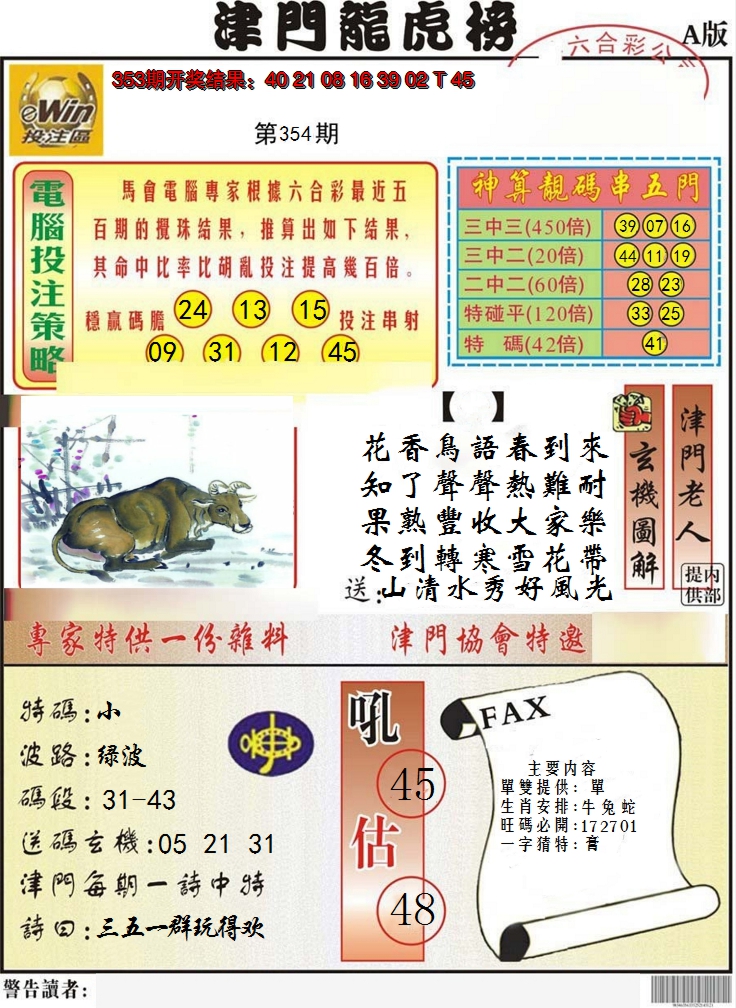 津門龍虎榜
A版
六合彩公
353期开奖结果：40 21 08 16 39 02 T 45
eWin
投注區
第354期
電腦投注策略
馬會電腦專家根據六合彩最近五
百期的攪珠结果，推算出如下结果，
其命中比率比胡亂投注提高幾百倍。
穩贏碼膽 24 13 15 投注串射
09 31 12 45
神算靚碼串五門
三中三(450倍) 39 07 16
三中二(20倍) 44 11 19
二中二(60倍) 28 23
特碰平(120倍) 33 25
特 碼(42倍) 41
【 】
花香鳥語春到來
知了聲聲熱難耐
果熟豐收大家樂
冬到轉寒雪花帶
送:山清水秀好風光
玄機圖解
津門老人
内部提供
專家特供一份雜料
津門協會特邀
特碼:小
波路:绿波
碼段:31-43
送碼玄機:05 21 31
津門每期一詩中特
詩曰:三五一群玩得欢
吼
45
估
48
FAX
主要内容
單雙提供：單
生肖安排:牛兔蛇
旺碼必開:172701
一字猜特：膏
警告讀者：